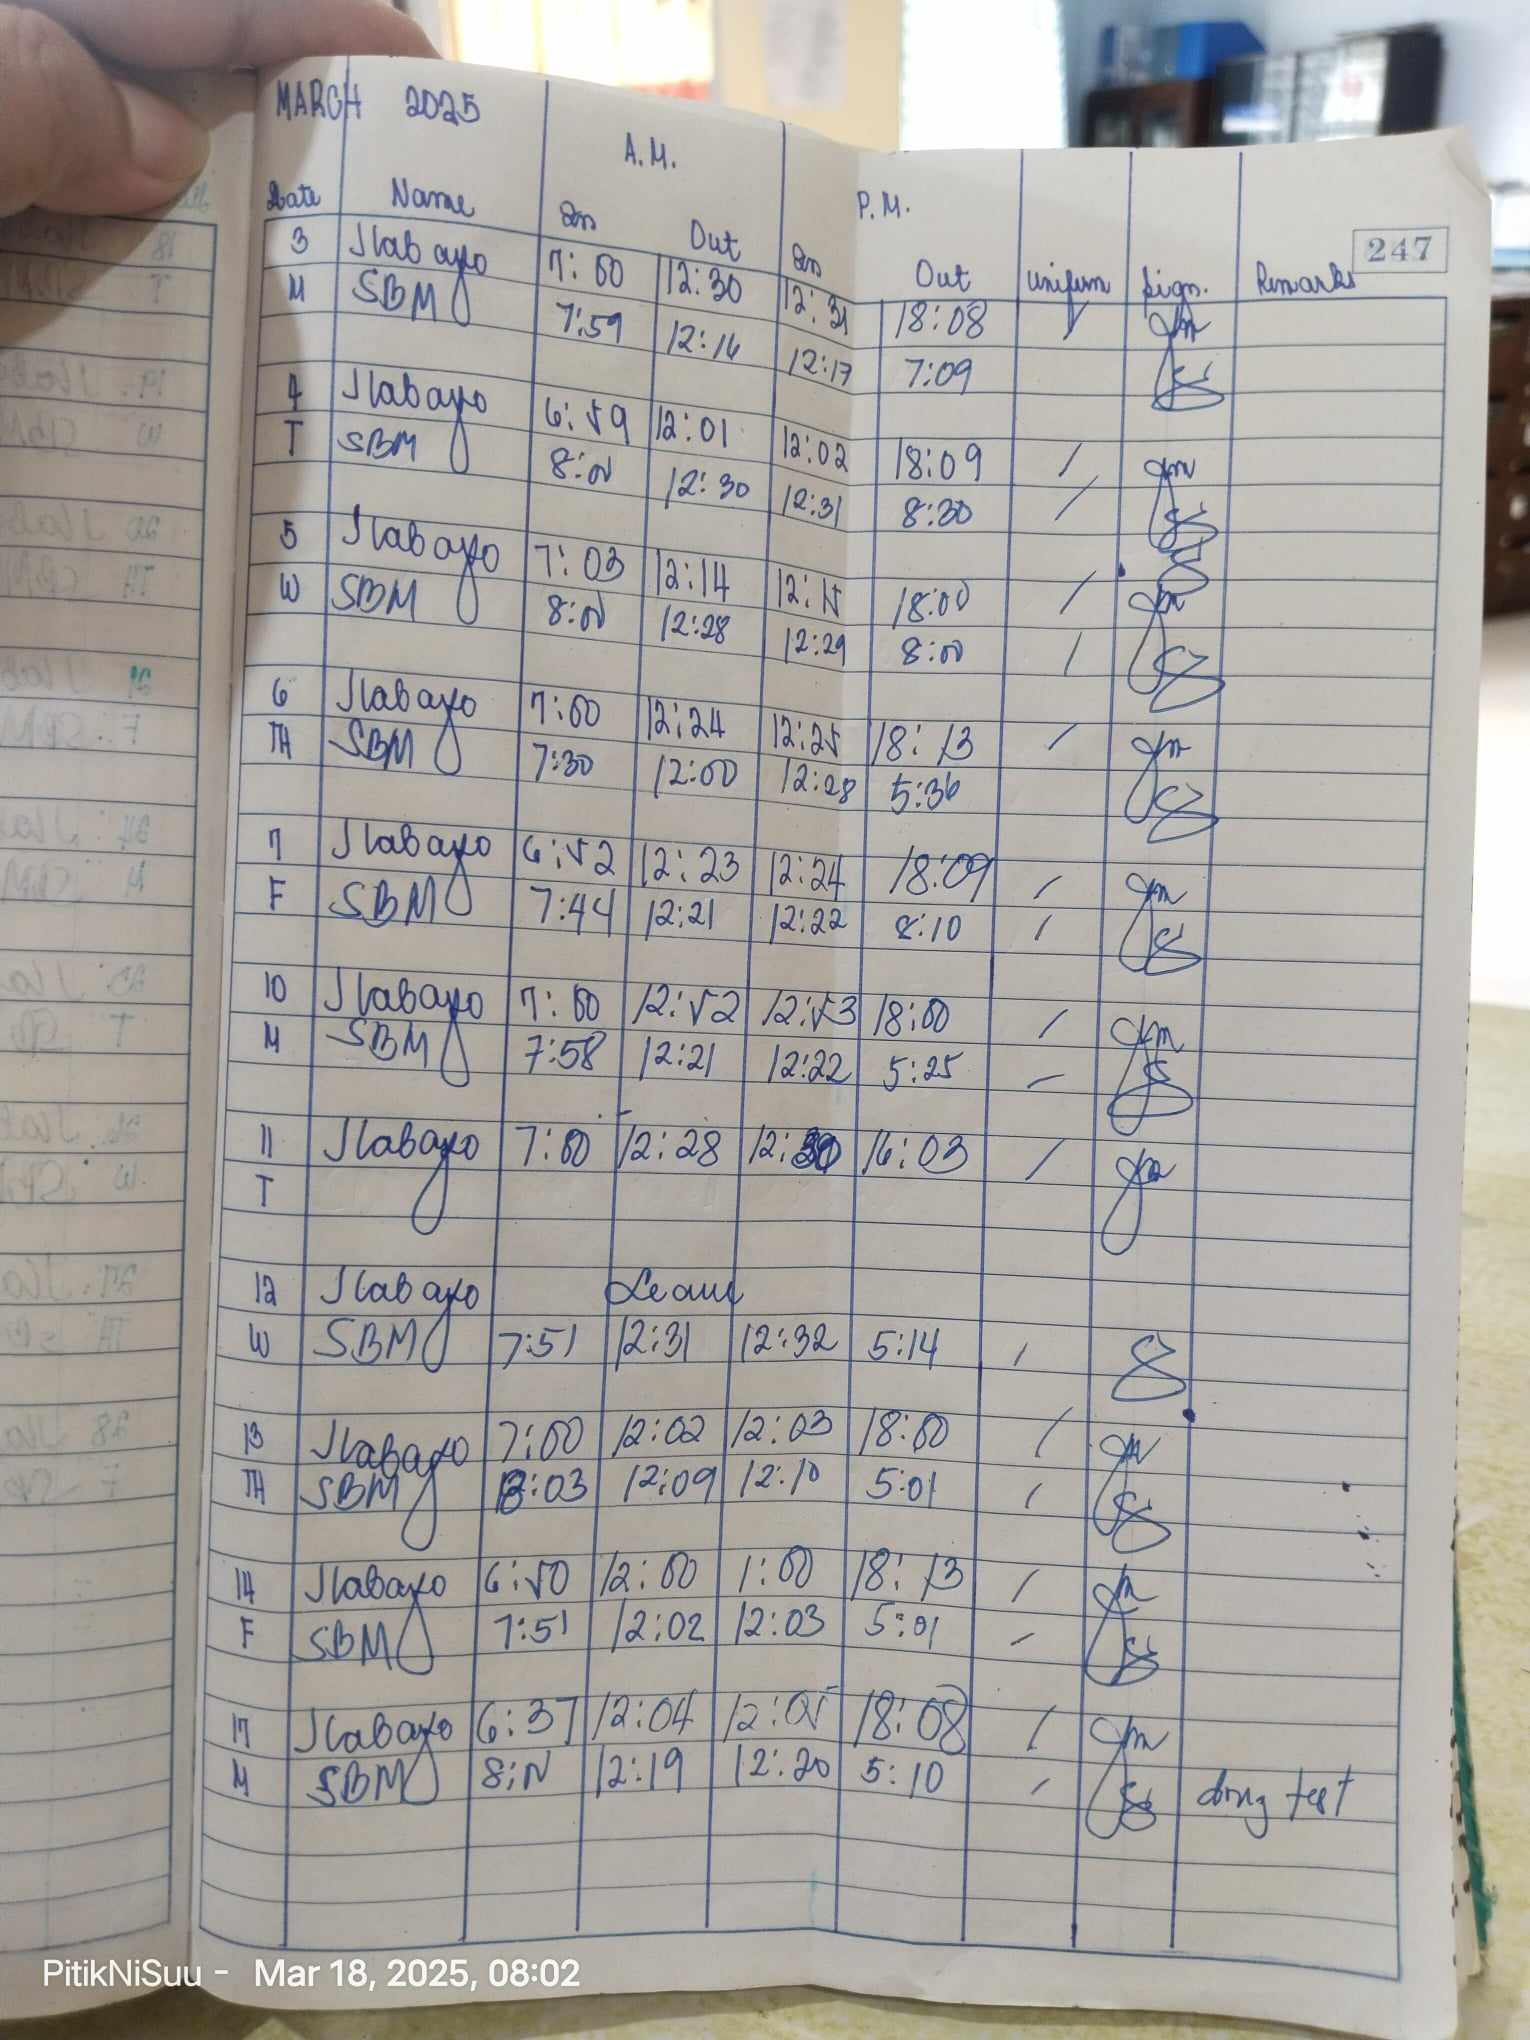 MARCH 2025
A.M.
P.M.
247
Date Name In Out In Out Uniform Sign. Remarks
3 Jlabayo 7:00 12:30 12:31 18:08
M SBM 7:59 12:16 12:17 7:09
4 Jlabayo 6:59 12:01 12:02 18:09
T SBM 8:00 12:30 12:31 8:30
5 Jlabayo 7:03 12:14 12:15 18:00
W SBM 8:00 12:28 12:29 8:00
6 Jlabayo 7:00 12:24 12:25 18:13
TH SBM 7:30 12:00 12:28 5:36
7 Jlabayo 6:52 12:23 12:24 18:09
F SBM 7:44 12:21 12:22 8:10
10 Jlabayo 7:00 12:52 12:53 18:00
M SBM 7:58 12:21 12:22 5:25
11 Jlabayo 7:00 12:28 12:30 16:03
T
12 Jlabayo Leave
W SBM 7:51 12:31 12:32 5:14
13 Jlabayo 7:00 12:02 12:03 18:00
TH SBM 8:03 12:09 12:10 5:01
14 Jlabayo 6:50 12:00 1:00 18:13
F SBM 7:51 12:02 12:03 5:01
17 Jlabayo 6:37 12:04 12:05 18:08
M SBM 12:19 12:20 5:10 test
PitikNiSuu - Mar 18, 2025, 08:02